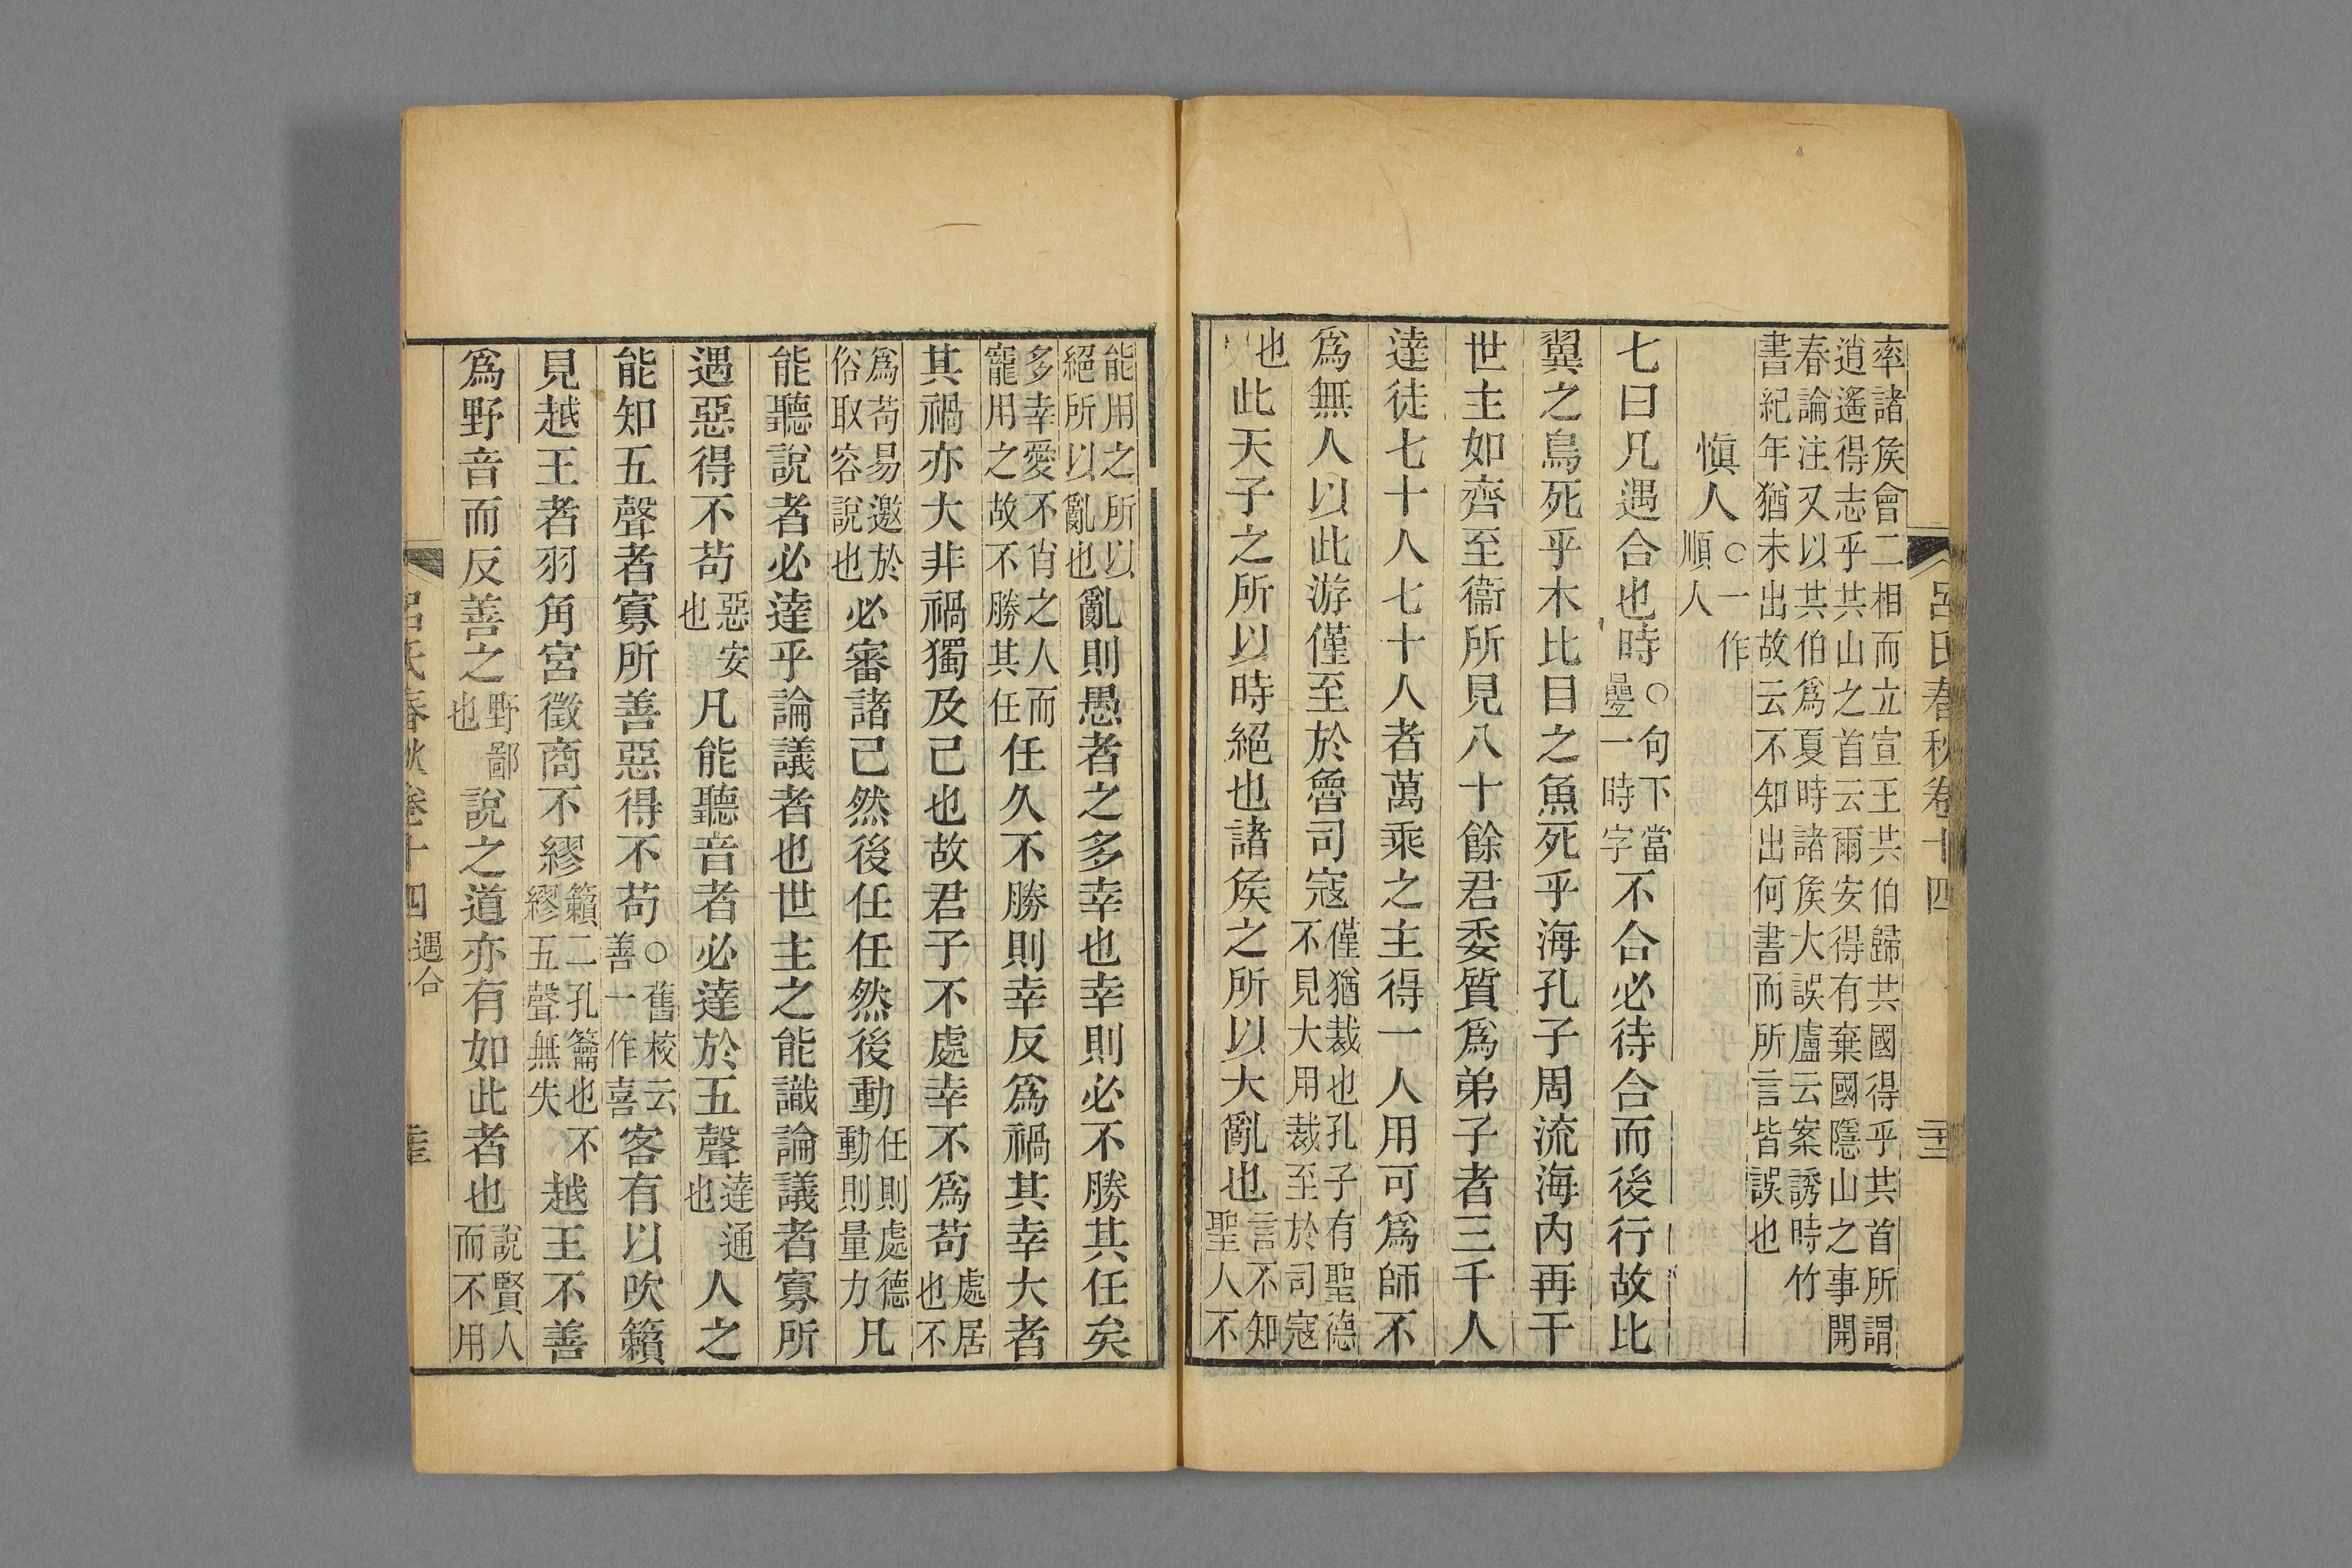 呂氏春秋卷十四
率諸矦會二相而立宣王共伯歸共國得乎共首所謂
逍遙得志乎共山之首云爾安得有棄國隱山之事開
春論注又以共伯爲夏時諸矦大誤盧云案誘時竹
書紀年猶未出故云不知出何書而所言皆誤也
愼人○一作順人
七曰凡遇合也時○句下當疊一時字不合必待合而後行故比
翼之鳥死乎木比目之魚死乎海孔子周流海內再干
世主如齊至衞所見八十餘君委質爲弟子者三千人
達徒七十人七十人者萬乘之主得一人用可爲師不
爲無人以此游僅至於魯司寇僅猶裁也孔子有聖德不見大用裁至於司寇
也此天子之所以時絕也諸矦之所以大亂也言不知聖人不
能用之所以絕所以亂也亂則愚者之多幸也幸則必不勝其任矣
多幸愛不肖之人而寵用之故不勝其任任久不勝則幸反爲禍其幸大者
其禍亦大非禍獨及己也故君子不處幸不爲苟處居也不
爲苟易邀於俗取容說也必審諸己然後任任然後動任則處德動則量力凡
能聽說者必達乎論議者也世主之能識論議者寡所
遇惡得不苟惡安也凡能聽音者必達於五聲達通也人之
能知五聲者寡所善惡得不苟○舊校云善一作喜客有以吹籟
見越王者羽角宮徵商不繆籟二孔籥也不繆五聲無失越王不善
爲野音而反善之野鄙也說之道亦有如此者也說賢人而不用
呂氏春秋卷十四 遇合